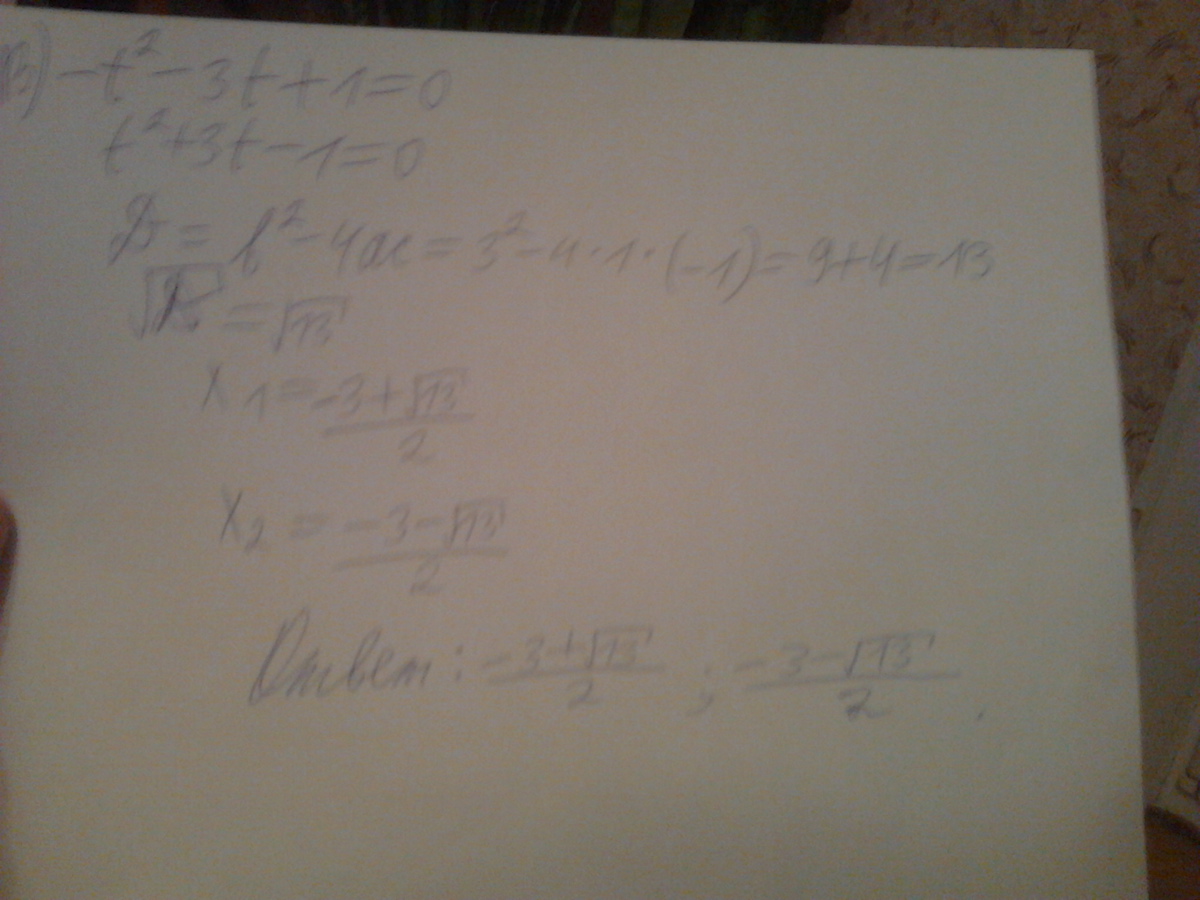 в) -t² - 3t + 1 = 0
t² + 3t - 1 = 0
D = b² - 4ac = 3² - 4·1·(-1) = 9 + 4 = 13
√D = √13
x₁ = (-3 + √13)/2
x₂ = (-3 - √13)/2
Ответ: (-3 + √13)/2 ; (-3 - √13)/2 .